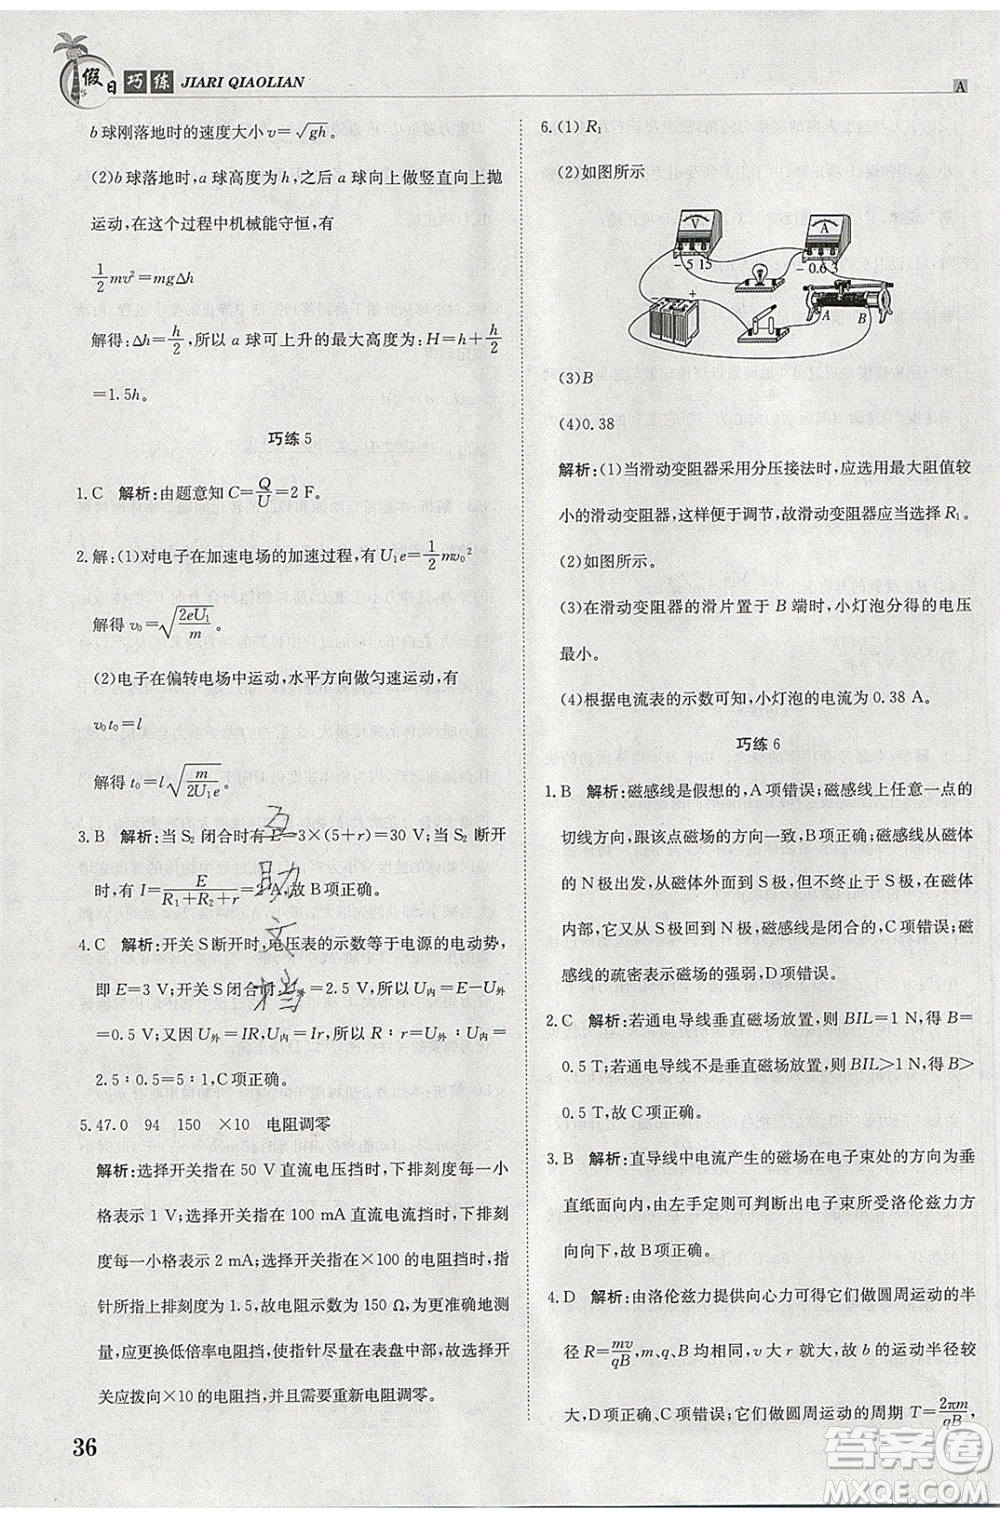 假日 巧练 JIARI QIAOLIAN
A
b 球刚落地时的速度大小 v=√gh.
(2)b 球落地时,a 球高度为 h,之后 a 球向上做竖直向上抛
运动,在这个过程中机械能守恒,有
1/2 mv²=mgΔh
解得:Δh=h/2,所以 a 球可上升的最大高度为:h+h/2
=1.5h.
巧练 5
1.C 解析:由题意知 C=Q/U=2 F.
2.解:(1)对电子在加速电场的加速过程,有 U₁e=1/2 mv₀²
解得 v₀=√(2eU₁/m)
(2)电子在偏转电场中运动,水平方向做匀速运动,有
v₀t₀=l
解得 t₀=l√(m/2U₁e)
3.B 解析:当 S₂ 闭合时有 E=3×(5+r)=30 V;当 S₂ 断开
时,有 I=E/(R₁+R₂+r)=2 A,故 B 项正确.
4.C 解析:开关 S 断开时,电压表的示数等于电源的电动势,
即 E=3 V;开关 S 闭合时,U外=2.5 V,所以 U内=E-U外
=0.5 V;又因为 U外=IR,U内=Ir,所以 R∶r=U外∶U内=
2.5∶0.5=5∶1,C 项正确.
5.47.0 94 150 ×10 电阻调零
解析:选择开关指在 50 V 直流电压挡时,下排刻度每一小
格表示 1 V;选择开关指在 100 mA 直流电流挡时,下排刻
度每一小格表示 2 mA;选择开关指在×100 的电阻挡时,指
针所指上排刻度为 1.5,故电阻示数为 150 Ω,为更准确地测
量,应更换低倍率电阻挡,以使指针在表盘中部,故选择开
关应拨向×10 的电阻挡,并且需要重新电阻调零.
36
6.(1)R₁
(2)如图所示
V
-5 15
A
-0.6 3
-
+
A B
(3)B
(4)0.38
解析:(1)当滑动变阻器采用分压接法时,应选用最大阻值较
小的滑动变阻器,这样便于调节,故滑动变阻器应当选择 R₁.
(2)如图所示.
(3)在滑动变阻器的滑片置于 B 端时,小灯泡分得的电压
最小.
(4)根据电流表的示数可知,小灯泡的电流为 0.38 A.
巧练 6
1.B 解析:磁感线是假想的,A 项错误;磁感线上任意一点的
切线方向,跟该点磁场的方向一致,B 项正确;磁感线从磁体
的 N 极出发,从磁体外面到 S 极,但不终止于 S 极,在磁体
内部,它又从 S 极回到 N 极,磁感线是闭合的,C 项错误;磁
感线的疏密表示磁场的强弱,D 项错误.
2.C 解析:若通电导线垂直磁场放置,则 BIL=1 N,得 B=
0.5 T;若通电导线不是垂直磁场放置,则 BIL>1 N,得 B>
0.5 T,故 C 项正确.
3.B 解析:直导线中电流产生的磁场在电子束处的方向垂
直纸面向内,由左手定则可判断出电子束所受洛伦兹力方
向向下,故 B 项正确.
4.D 解析:由洛伦兹力提供向心力可得它们做圆周运动的半
径 R=mv/qB,A 项错误;又 v 大 r 就大,故 a 的运动半径较
大,D 项正确,C 项错误;它们做圆周运动的周期 T=2πm/qB,
互助文档
答案卷
MXQE.COM